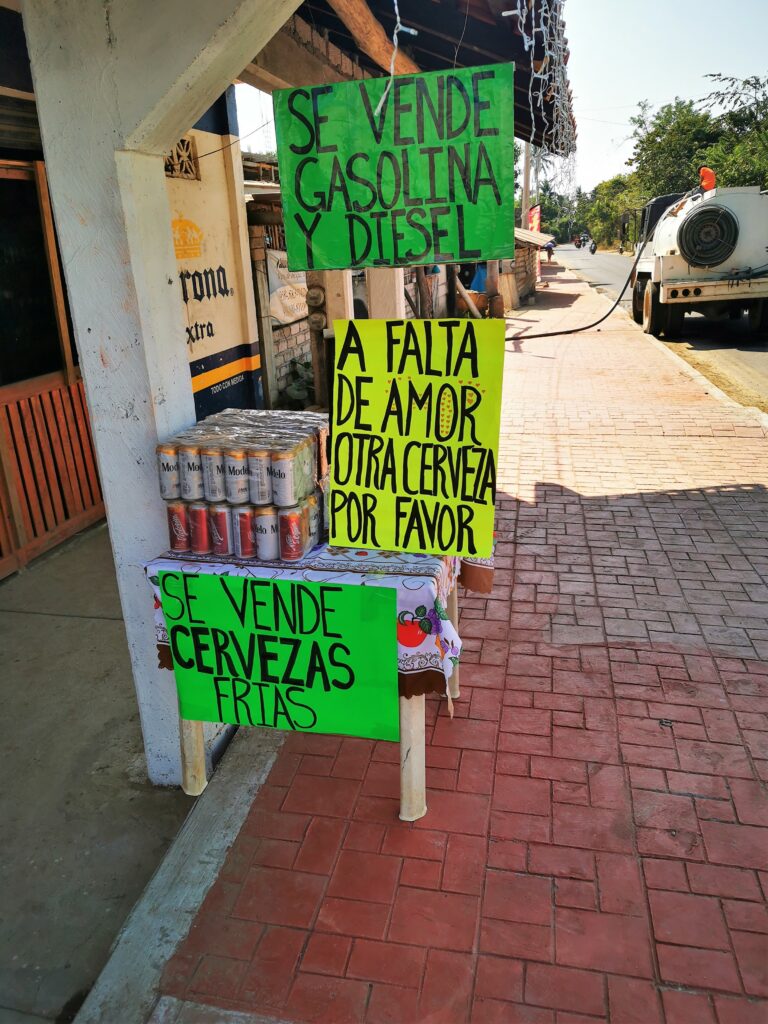 SE VENDE
GASOLINA
Y DIESEL
A FALTA
DE AMOR
OTRA CERVEZA
POR FAVOR
SE VENDE
CERVEZAS
FRIAS
rona.
xtra
TODO CON MEDIDA
Mode
Mode
Mode
Mode
Modelo